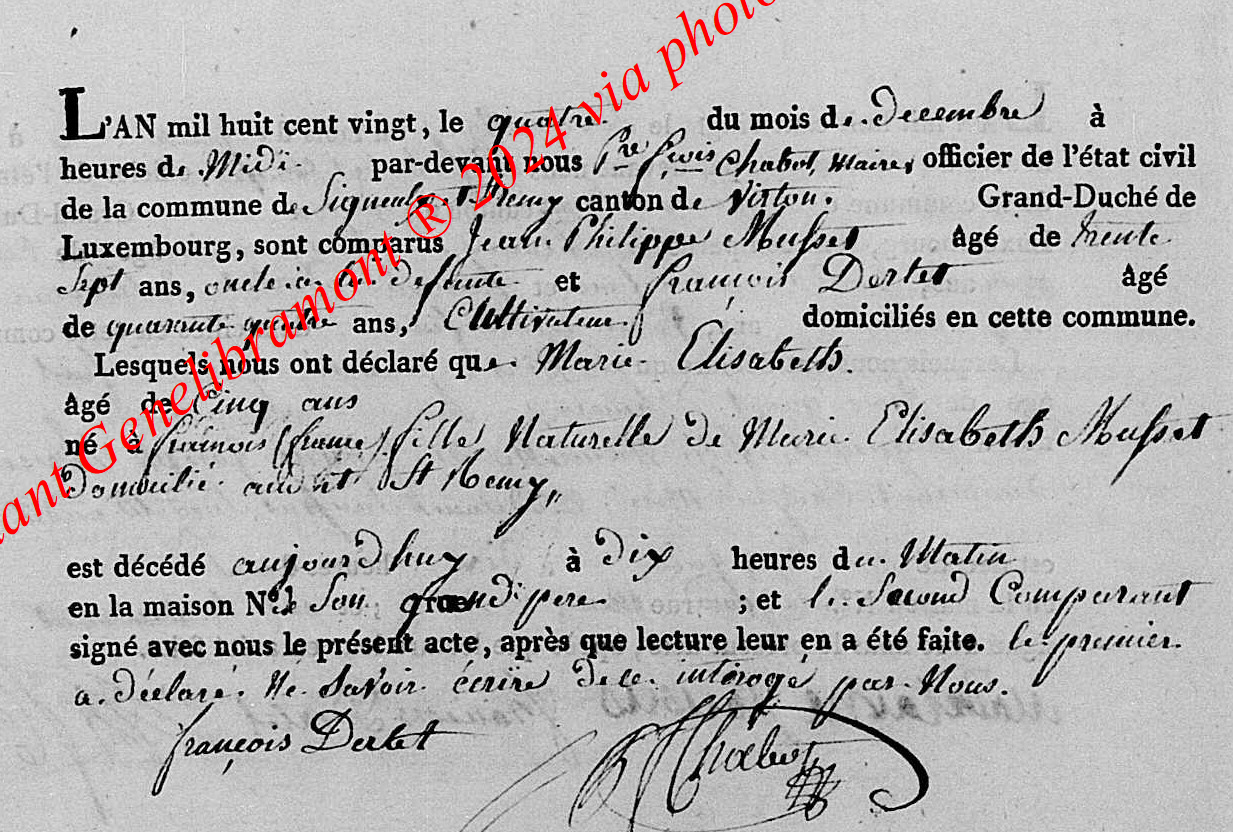 L'AN mil huit cent vingt, le quatre du mois de decembre à
heures de Midi par-devant nous Pre fçois Chabot, Maire, officier de l'état civil
de la commune de Signeulx canton de Virton. Grand-Duché de
Luxembourg, sont comparus Jean Philippe Musset âgé de trente
Sept ans, oncle de la defunte et françois Dertet âgé
de quarante quatre ans, Cultivateur domiciliés en cette commune.
Lesquels nous ont déclaré que Marie Elisabeth.
âgé de Cinq ans
né à (france) fille Naturelle de Marie Elisabeth Musset
Domicilié audit St Remy,,
est décédé aujourdhuy à dix heures du Matin
en la maison N.º de Son grand pere ; et le Second Comparant
signé avec nous le présent acte, après que lecture leur en a été faite. le premier
a déclaré Ne Savoir écrire de ce interogé par Nous.
françois Dertet
Chabot
ant Genelibramont ® 2024 via photo